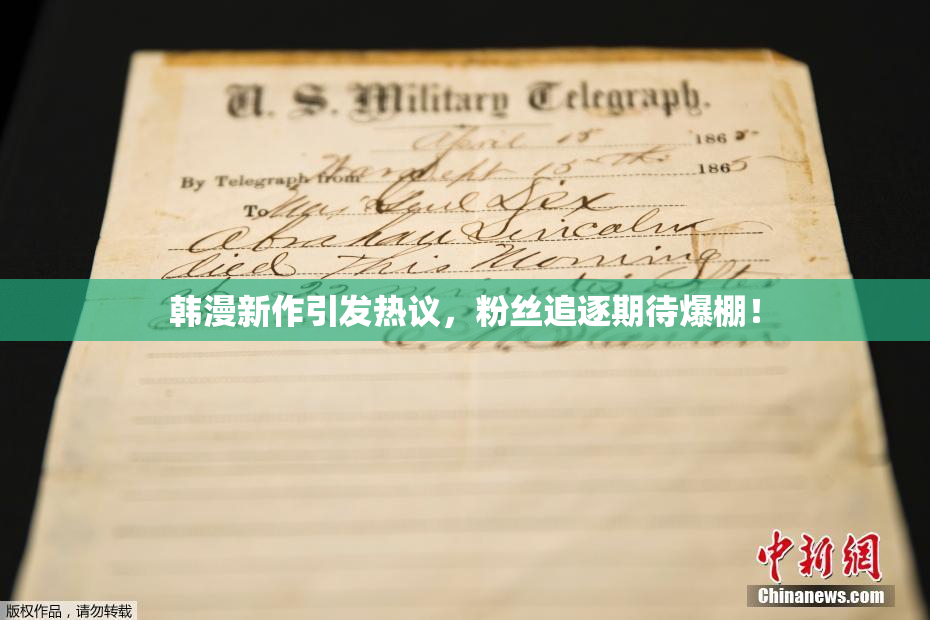 U. S. Military Telegraph.
April 15 1865
By Telegraph from War Dept 15th 1865
To Maj Genl Dix
Abraham Lincoln
died This Morning
at 22 minutes after
韩漫新作引发热议，粉丝追逐期待爆棚！
中新网
Chinanews.com
版权作品，请勿转载